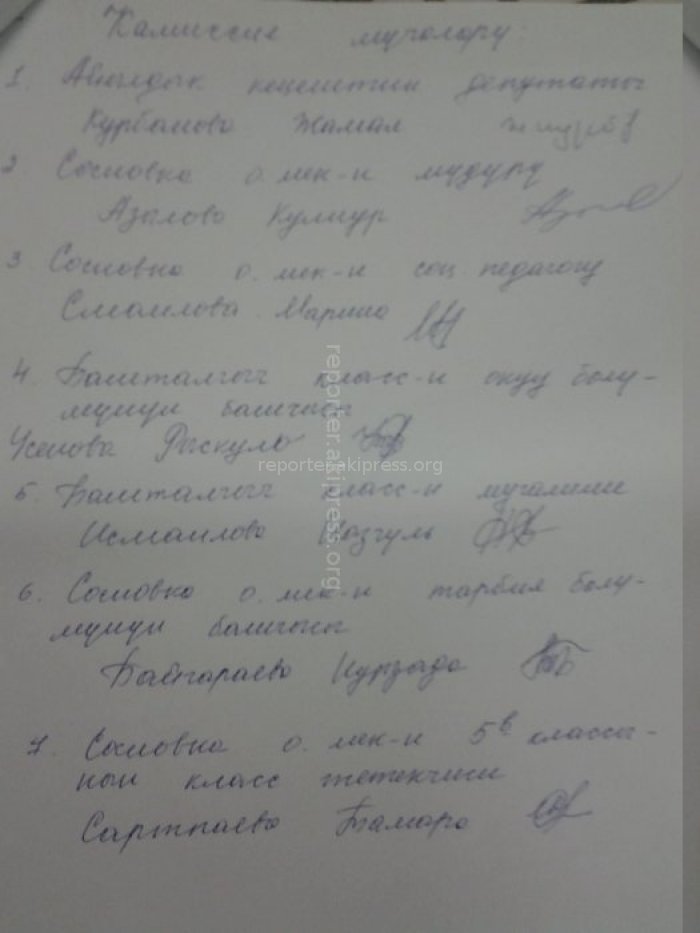 Камиссия мучөлөрү:
1. Айылдык кеңештин депутаты
Курбанова Жамал
2 Сосновка о. мек-н мудуру
Азылова Кулнур
3. Сосновка о. мек-н соц. педагогу
Смаилова Марина
4. Башталгыч класс-н окуу бөлү-
мүнүн башчысы
Усенова Раскула
5. Башталгыч класс-н мугалими
Исмаилова Назгуль
6. Сосновка о. мек-н тарбия бөлү-
мүнүн башчысы
Байгараева Нурзада
7. Сосновка о. мек-н 5в классы-
нын класс жетекчиси
Сартпаева Тамара
reporter.akipress.org
reporter.akipress.org